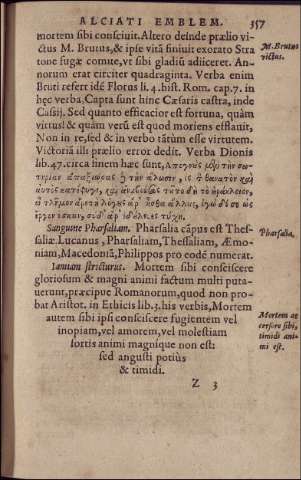 ALCIATI EMBLEM. 357
mortem sibi consciuit. Altero deinde prælio vi-
ctus M. Brutus, & ipse vitâ siniuit exorato Stra
tone fugæ comite, vt sibi gladiũ adiiceret. An-
M. Brutus
victus.
norum erat circiter quadraginta. Verba enim
Bruti refert idē Florus li. 4. hist. Rom. cap. 7. in
hęc verba, Capta sunt hinc Cæsaris castra, inde
Cassij. Sed quanto efficacior est fortuna, quàm
virtus! & quàm verũ est quod moriens efflauit,
Non in re, sed & in verbo tãtùm esse virtutem.
Victoriã illi prælio error dedit. Verba Dionis
lib. 47. circa finem hæc sunt,
Sanguine Pharsaliam. Pharsalia cãpus est Thes-
saliæ Lucanus, Pharsaliam, Thessaliam, Æmo-
Pharsalia,
niam, Macedoniã, Philippos pro eodē numerat.
Iamiam stricturus. Mortem sibi consciscere
gloriosum & magni animi factum multi puta-
uerunt, præcipue Romanorum, quod non pro-
bat Aristot. in Ethicis lib. 3. his verbis, Mortem
autem sibi ipsi consciscere fugientem vel
Mortem ac
cersere sibi,
timidi ani-
mi est.
inopiam, vel amorem, vel molestiam
fortis animi magnique non est:
sed angusti potiùs
& timidi.
Z 3